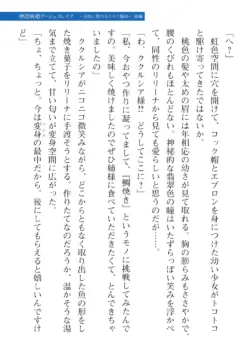 「へ？」
虹色空間に穴を開けて、コック帽とエプロンを身につけた幼い少女がトコトコ
と駆け寄ってきたではないか。
桃色の髪や太めの眉には年相応の幼さが見て取れる。胸の膨らみもささやかで、
腰のくびれもほとんどない。神秘的な翡翠色の瞳はいたずらっぽい笑みを浮かべ
て、同性のリリーナから見ても愛らしいと思うのだった。
「ククルシア様!?　どうしてここに!?」
「私、今おやつ作りに凝ってまして、『鯛焼き』というモノに挑戦してみたんで
すの。美味しく焼けましたのでぜひ姉様に食べていただきたくて、とんできちゃ
いましたの」
ククルシアがニコニコ微笑みながら、どこからともなく取り出した魚の形をし
た焼き菓子をリリーナに手渡そうとする。作りたてなのだろうか、温かそうな湯
気まで立てて、甘い匂いが変身空間に広がった。
「ちょ、ちょっと、今は変身の最中だから、後にしてもらえると嬉しいんですけ
ど」